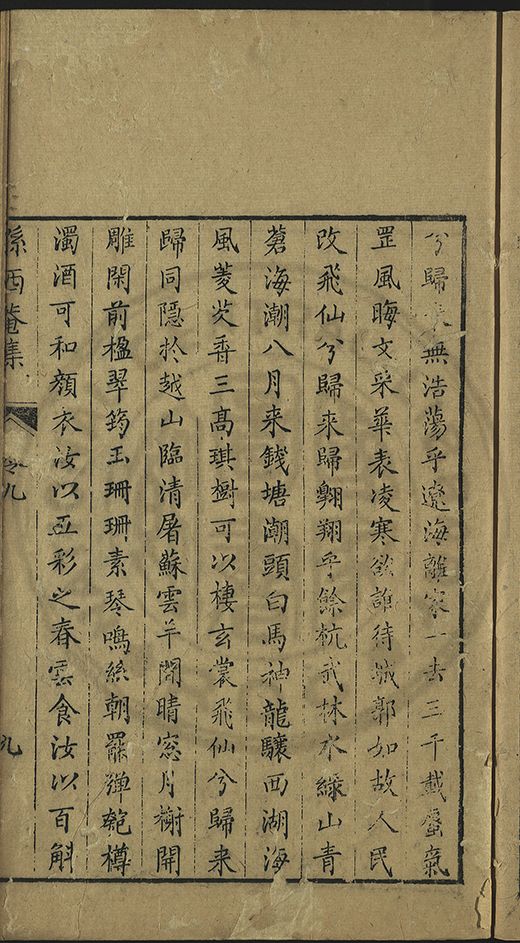 兮歸来無浩蕩乎遼海離家一去三千載蜃氣
罡風晦文采華表凌寒欲誰待城郭如故人民
改飛仙兮歸来歸翱翔乎餘杭武林水緑山青
蒼海潮八月来錢塘潮頭白馬神龍驤西湖海
風菱芡香三髙琪樹可以棲玄裳飛仙兮歸来
歸同隠於越山臨清屠蘇雲半間晴窓月榭開
雕閑前楹翠筠玉珊珊素琴鳴絲朝罷弾匏樽
濁酒可和顔衣汝以五彩之春雲食汝以百斛
孫西菴集
卷九
九